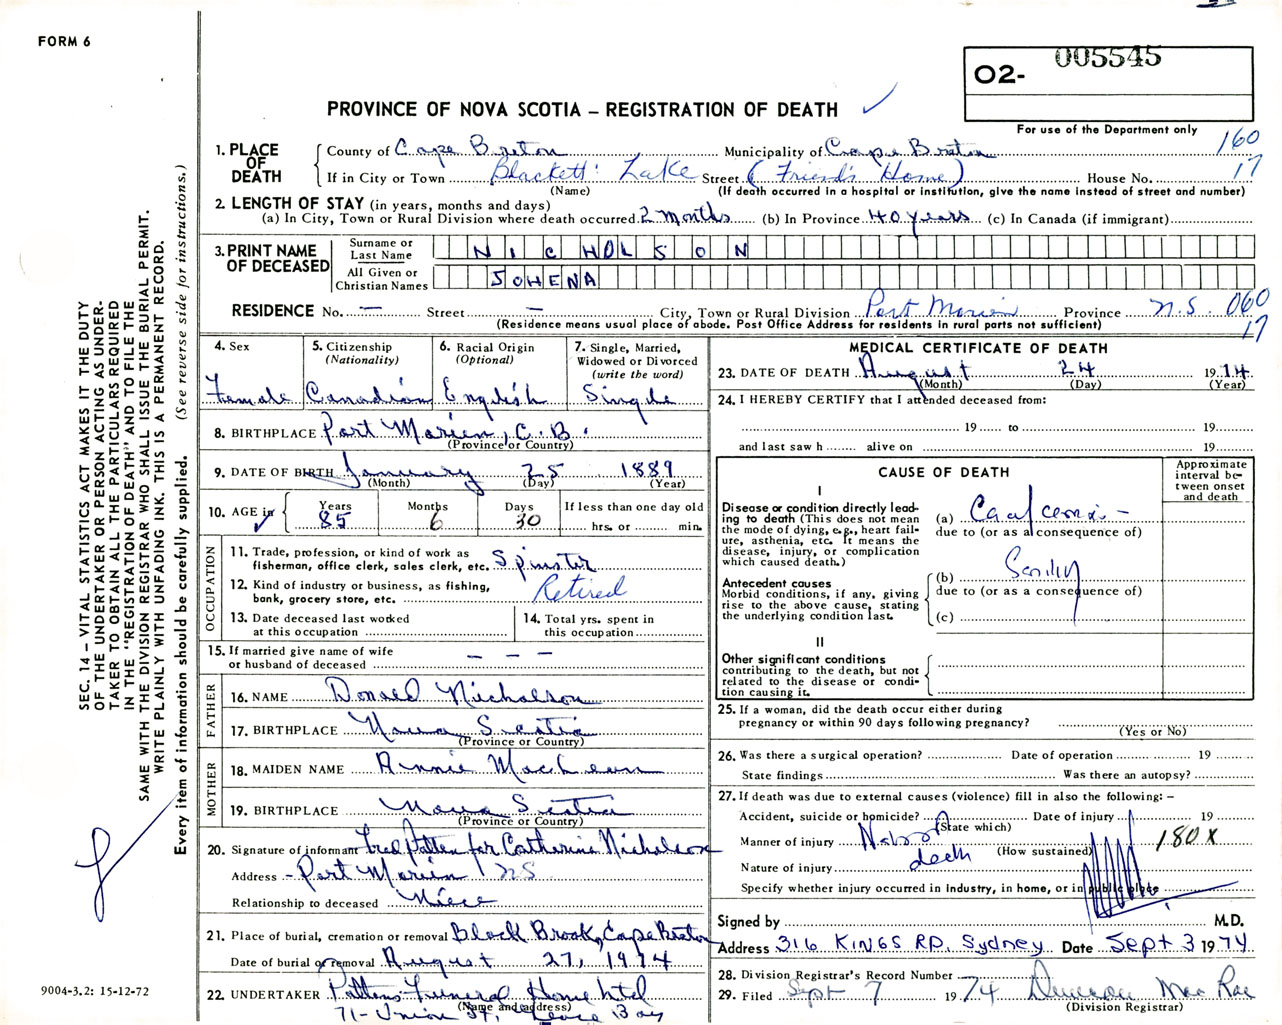 FORM 6
005545
O2-
PROVINCE OF NOVA SCOTIA – REGISTRATION OF DEATH
For use of the Department only
160
17
1. PLACE OF DEATH
County of Cape Breton Municipality of Cape Breton
If in City or Town Blackett's Lake Street (Friend's Home) House No.
(Name) (If death occurred in a hospital or institution, give the name instead of street and number)
2. LENGTH OF STAY (in years, months and days)
(a) In City, Town or Rural Division where death occurred 2 months (b) In Province 40 years (c) In Canada (if immigrant)
3. PRINT NAME OF DECEASED
Surname or Last Name NICHOLSON
All Given or Christian Names JOHENA
RESIDENCE No. — Street — City, Town or Rural Division Port Morien Province N.S. 060
17
(Residence means usual place of abode. Post Office Address for residents in rural parts not sufficient)
4. Sex
Female
5. Citizenship (Nationality)
Canadian
6. Racial Origin (Optional)
English
7. Single, Married, Widowed or Divorced (write the word)
Single
8. BIRTHPLACE Port Morien, C.B.
(Province or Country)
9. DATE OF BIRTH January 25 1889
(Month) (Day) (Year)
10. AGE in Years 85 Months 6 Days 30 If less than one day old
hrs. or min.
OCCUPATION
11. Trade, profession, or kind of work as fisherman, office clerk, sales clerk, etc. Spinster
12. Kind of industry or business, as fishing, bank, grocery store, etc. Retired
13. Date deceased last worked at this occupation
14. Total yrs. spent in this occupation
15. If married give name of wife or husband of deceased — — —
FATHER
16. NAME Donald Nicholson
17. BIRTHPLACE Nova Scotia
(Province or Country)
MOTHER
18. MAIDEN NAME Annie MacLean
19. BIRTHPLACE Nova Scotia
(Province or Country)
20. Signature of informant Fred Patten for Catherine Nicholson
Address – Port Morien NS
Relationship to deceased Niece
21. Place of burial, cremation or removal Black Brook, Cape Breton
Date of burial or removal August 27, 1974
22. UNDERTAKER Pattens Funeral Home Ltd
(Name and address)
71 - Union St, Glace Bay
MEDICAL CERTIFICATE OF DEATH
23. DATE OF DEATH August 24 1974
(Month) (Day) (Year)
24. I HEREBY CERTIFY that I attended deceased from:
19 to 19
and last saw h alive on 19
CAUSE OF DEATH
Approximate interval between onset and death
I
Disease or condition directly leading to death (This does not mean the mode of dying, e.g., heart failure, asthenia, etc. It means the disease, injury, or complication which caused death.)
(a)
due to (or as a consequence of)
Antecedent causes
Morbid conditions, if any, giving rise to the above cause, stating the underlying condition last.
(b) Senility
due to (or as a consequence of)
(c)
II
Other significant conditions contributing to the death, but not related to the disease or condition causing it.
25. If a woman, did the death occur either during pregnancy or within 90 days following pregnancy?
(Yes or No)
26. Was there a surgical operation? Date of operation 19
State findings Was there an autopsy?
27. If death was due to external causes (violence) fill in also the following: –
Accident, suicide or homicide? Date of injury 19
(State which)
Manner of injury Natural 180X
(How sustained)
Nature of injury death
Specify whether injury occurred in industry, in home, or in public place
Signed by M.D.
Address 316 KINGS RD. Sydney Date Sept 3 1974
28. Division Registrar's Record Number
29. Filed Sept 7 1974 Duncan MacRae
(Division Registrar)
SEC. 14 – VITAL STATISTICS ACT MAKES IT THE DUTY
OF THE UNDERTAKER OR PERSON ACTING AS UNDER-
TAKER TO OBTAIN ALL THE PARTICULARS REQUIRED
IN THE "REGISTRATION OF DEATH" AND TO FILE THE
SAME WITH THE DIVISION REGISTRAR WHO SHALL ISSUE THE BURIAL PERMIT.
WRITE PLAINLY WITH UNFADING INK. THIS IS A PERMANENT RECORD.
Every item of information should be carefully supplied. (See reverse side for instructions.)
9004-3.2: 15-12-72